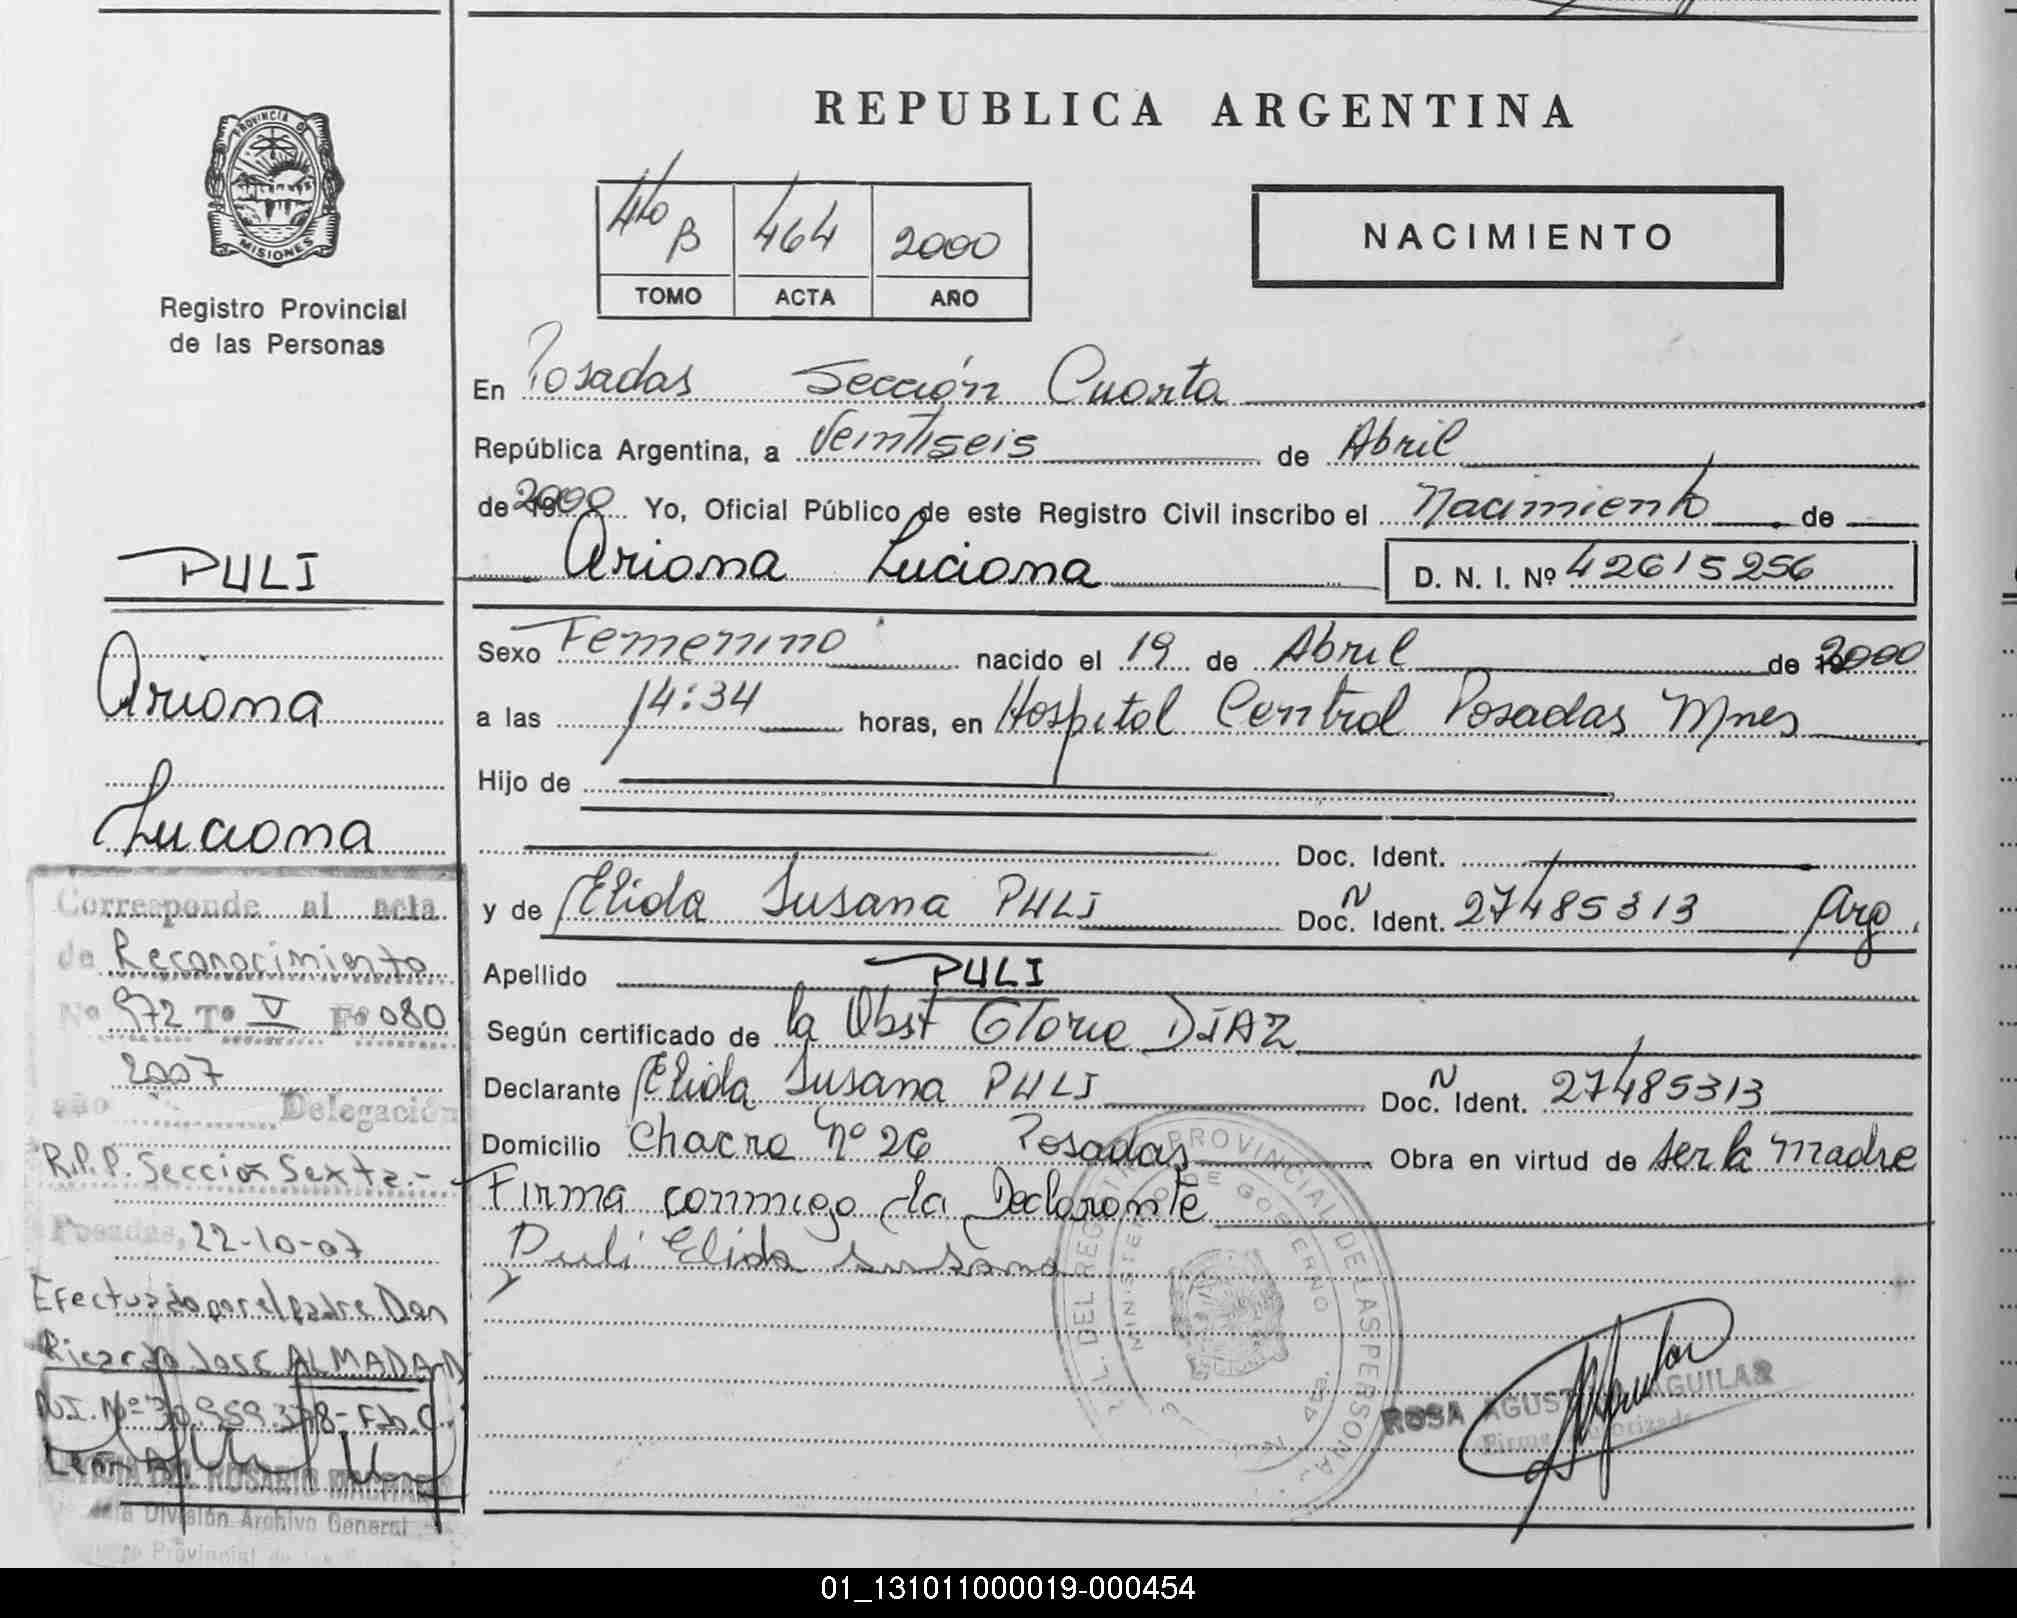 PROVINCIA DE
MISIONES
Registro Provincial
de las Personas
PULI
Ariana
Luciana
Corresponde al acta
de Reconocimiento
Nº 972 Tº V Fº 080
2007
año Delegación
R.P.P. Seccion Sexta.-
Posadas, 22-10-07
Efectuado por el padre Don
Ricardo Jose ALMADA D
N.I. Nº 30.959.378-Fdo.
DEL ROSARIO
División Archivo General
Provincial de las
REPUBLICA ARGENTINA
4to B 464 2000
TOMO ACTA AÑO
NACIMIENTO
En Posadas Sección Cuarta
República Argentina, a Veintiseis de Abril
de 2000 Yo, Oficial Público de este Registro Civil inscribo el Nacimiento de
Ariana Luciana D. N. I. Nº 42615256
Sexo Femenino nacido el 19 de Abril de 2000
a las 14:34 horas, en Hospital Central Posadas Mnes
Hijo de
Doc. Ident.
y de Elida Susana PULI Doc. N Ident. 27485313 Arg.
Apellido PULI
Según certificado de la Obst Gloria DIAZ
Declarante Elida Susana PULI Doc. N Ident. 27485313
Domicilio Chacra Nº 26 Posadas Obra en virtud de ser la madre
Firma conmigo la Declarante
Puli Elida Susana
DEL REGISTRO PROVINCIAL DE LAS PERSONAS
MINISTERIO DE GOBIERNO
ROSA AGUST AGUILAR
Firma Autorizada
01_131011000019-000454